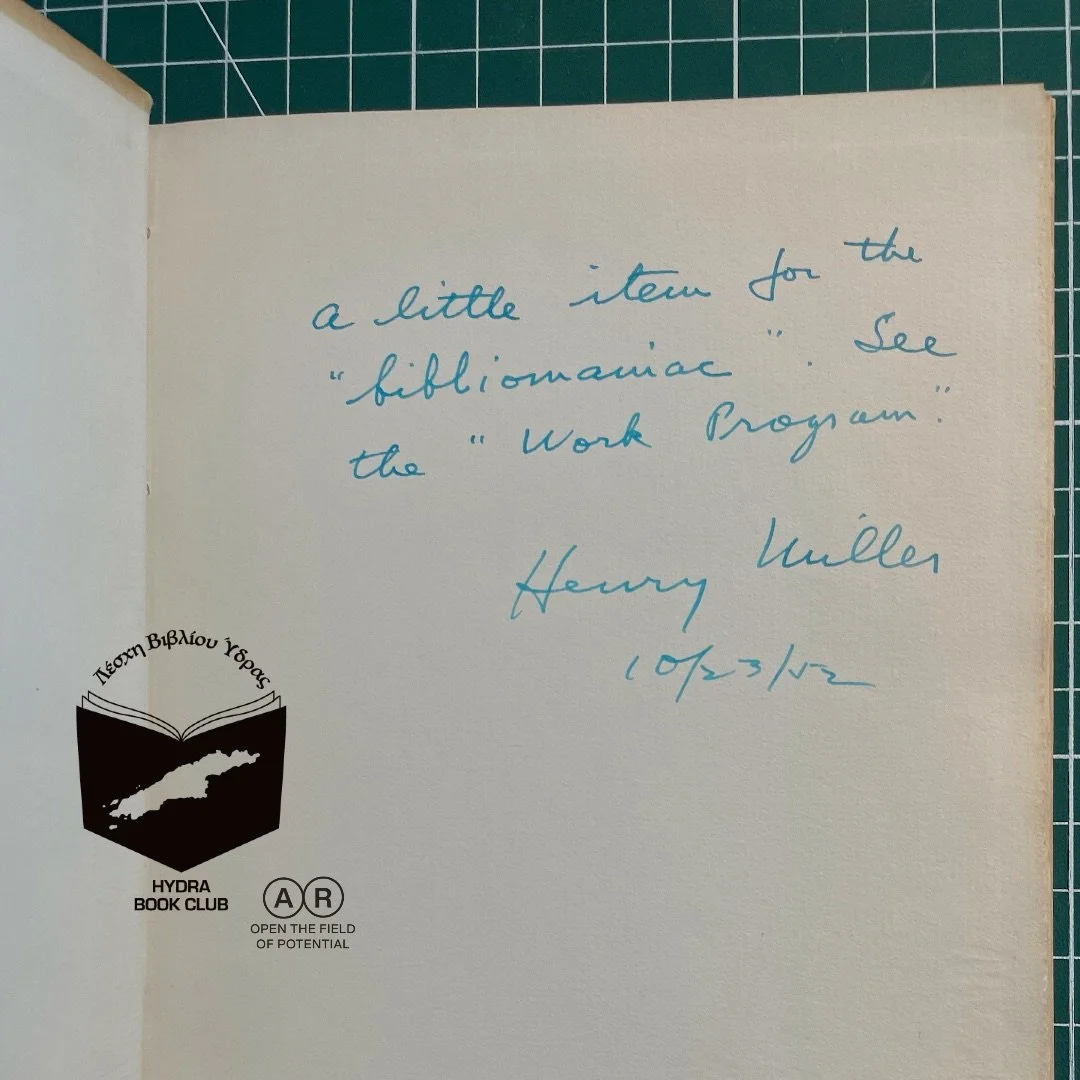 a little item for the
"bibliomaniac". See
the "Work Program".
Henry Miller
10/23/52
Λέσχη Βιβλίου Ύδρας
HYDRA
BOOK CLUB
A R
OPEN THE FIELD
OF POTENTIAL